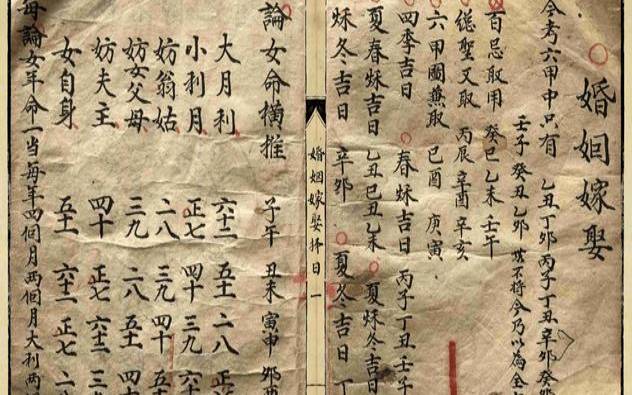 婚姻嫁娶
今考六甲中只有 乙丑丁卯丙子丁丑辛卯癸卯
壬子癸丑乙卯 不将今乃以為全
百忌取用 癸巳乙未壬午
総聖又取 丙辰辛酉辛亥
六甲圖兼取 己酉 庚寅
四季吉日 春秌吉日 丙子丁丑壬午
夏春秌吉日 乙丑巳丑乙未 夏秌冬吉日
秌冬吉日 辛卯 夏冬吉日 丁
婚姻嫁娶擇日 一
論女命橫推 子午 丑未 寅申 卯酉
大月利 六十二 五十一 二八 正七
小利月 正七 四十 三九 六十
妨翁姑 二八 三九 四十 五十
妨女父母 三九 二八 五十一 四十
妨夫主 四十 正七 六十二 三九
女自身 五十一 六十二 正七 二
每論女年命一當每年四個月兩個月大利兩